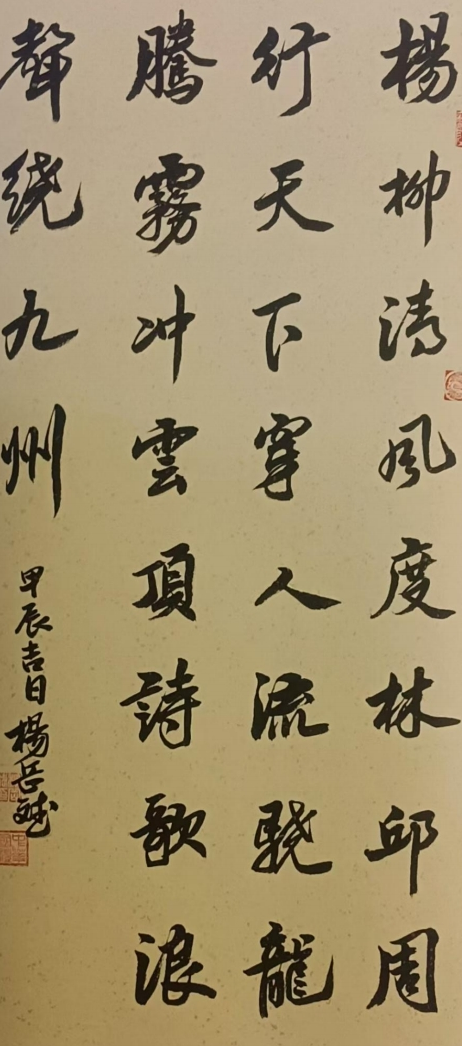 楊柳清風度林邱周
行天下穿人流驍龍
騰霧冲雲頂詩歌浪
聲繞九州
甲辰吉日楊岳斌